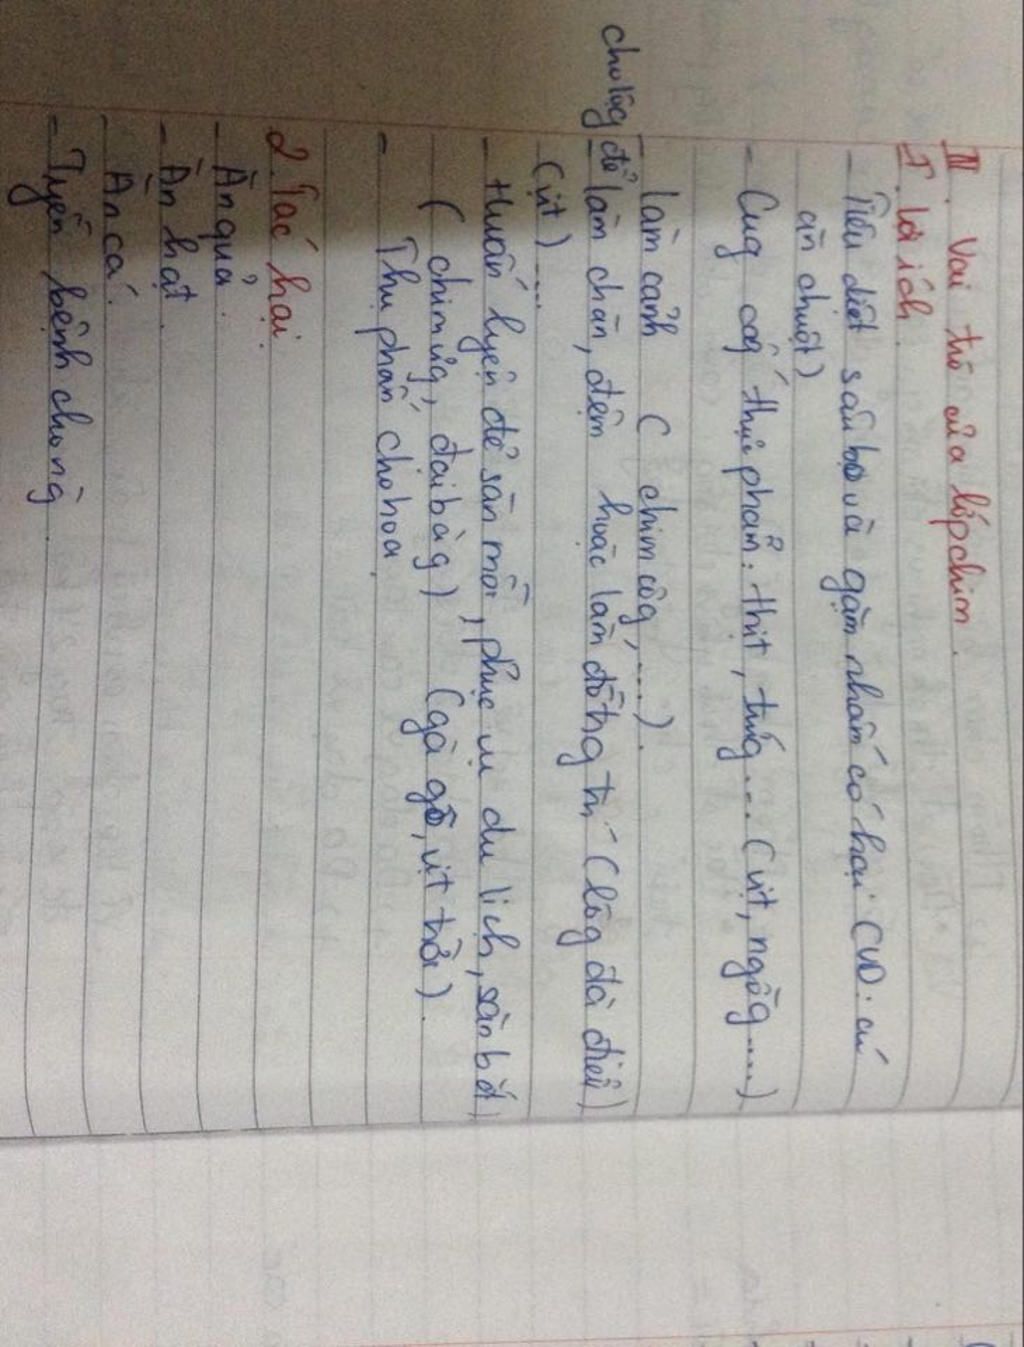 III. Vai trò của lớp chim.
1. Lợi ích.
- Tiêu diệt sâu bọ và gặm nhấm có hại (VD: cú
ăn chuột)
- Cug cấp thực phẩm: thịt, trứng.... (vịt, ngỗg....)
- làm cảnh ( chim côg,....).
cho lôg để làm chăn, đệm hoặc làm đồ trag trí (lôg đà điểu)
(vịt)....
- Huấn luyện để săn mồi, phục vụ du lịch, săn bắt
( chim ưg, đại bàg) (gà gô, vịt trời).
- Thụ phấn cho hoa.
2. Tác hại.
- Ăn quả.
- Ăn hạt.
- Ăn cá.
- Truyền bệnh cho ng